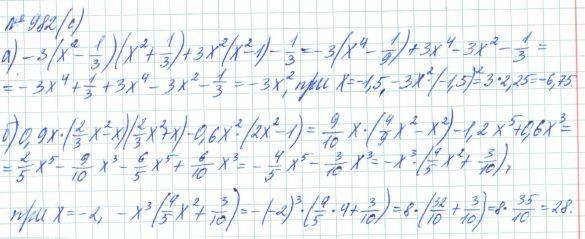 № 982 (с)
а) -3(x² - 1/3)(x² + 1/3) + 3x²(x² - 1) - 1/3 = -3(x⁴ - 1/9) + 3x⁴ - 3x² - 1/3 =
= -3x⁴ + 1/3 + 3x⁴ - 3x² - 1/3 = -3x², при x = -1,5, -3x² · (-1,5)² = 3 · 2,25 = -6,75
б) 0,9x · (2/3 x² - x)(2/3 x² + x) - 0,6x²(2x² - 1) = 9/10 x · (4/9 x² - x²) - 1,2x⁵ + 0,6x³ =
= 2/5 x⁵ - 9/10 x³ - 6/5 x⁵ + 6/10 x³ = -4/5 x⁵ - 3/10 x³ = -x³ · (4/5 x² + 3/10),
при x = -2, -x³(4/5 x² + 3/10) = -(-2)³ · (4/5 · 4 + 3/10) = 8 · (32/10 + 3/10) = 8 · 35/10 = 28.